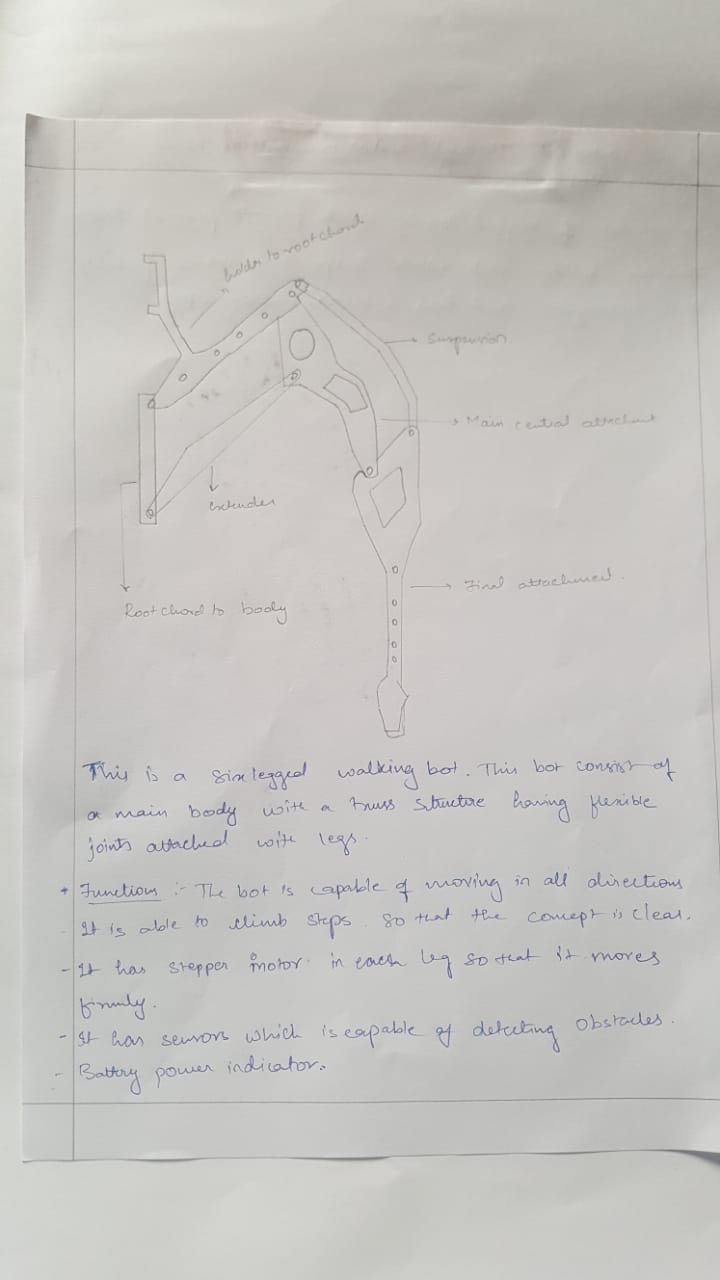 holder to root chord
Suspension
Main central attachment
extender
Final attachment.
Root chord to body
This is a six legged walking bot. This bot consist of
a main body with a truss structure having flexible
joints attached with legs.
* Function :- The bot is capable of moving in all directions
- It is able to climb steps so that the concept is clear.
- It has stepper motor in each leg so that it moves
firmly.
- It has sensors which is capable of detecting obstacles.
- Battery power indicator.